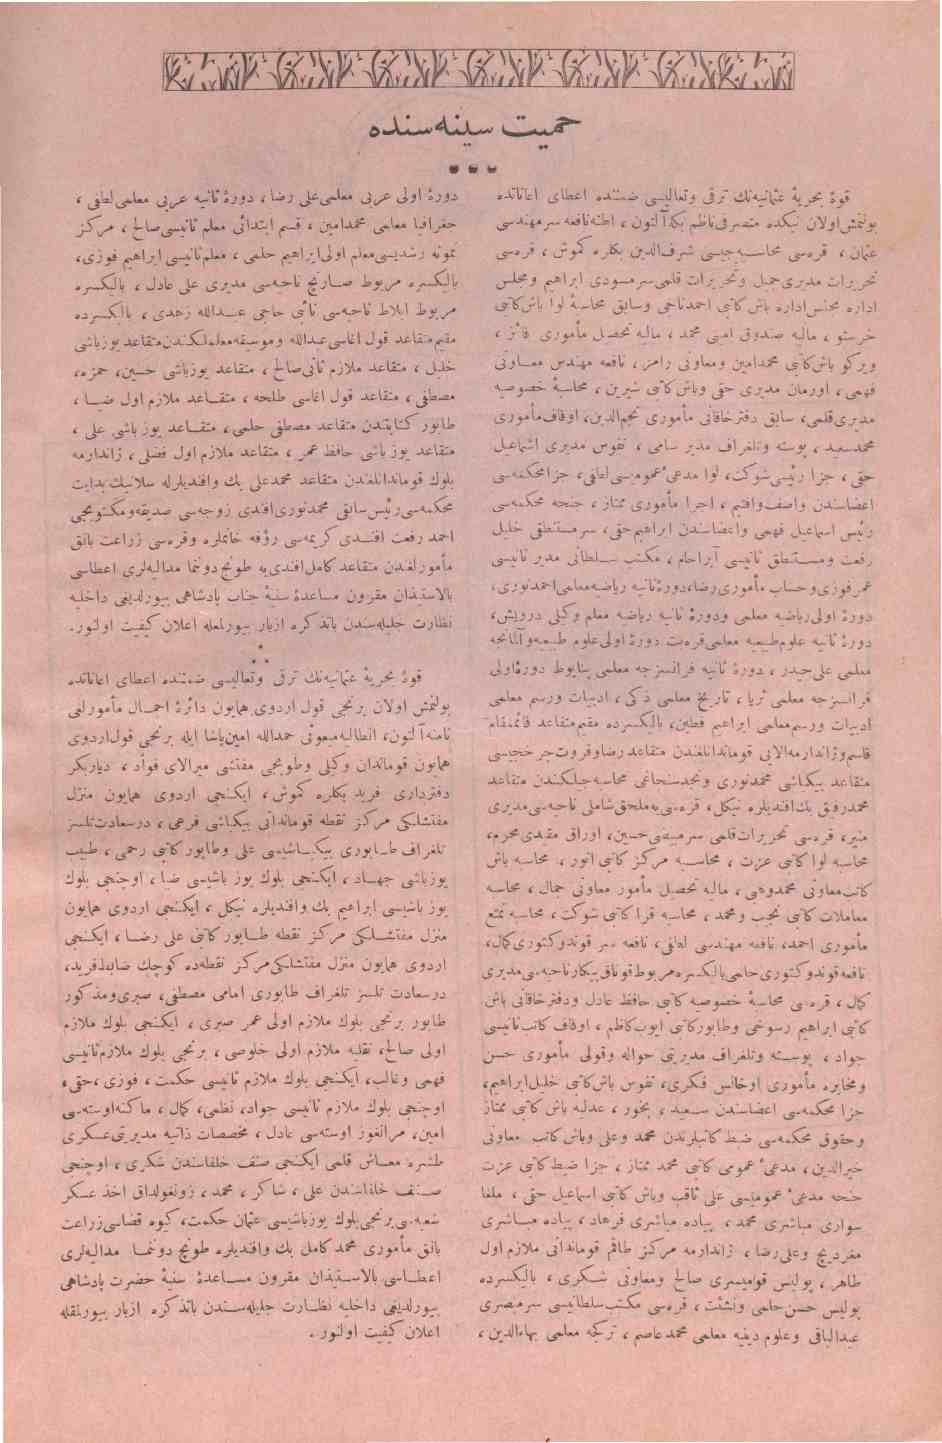 حمیت سینه‌سنده
قوهٔ بحریهٔ عثمانیه‌نك ترقی وتعالیسی ضمننده اعطای اعاناتده
بولنمش اولان نیكده متصرفی ناظم بكه آلتون ، اطنه نافعه سرمهندسی
عثمان ، قره‌سی محاسبه‌جیسی شرف‌الدین بكلره كموش ، قره‌سی
تحریرات مدیری جمیل وتحریرات قلمی سرمسودی ابراهیم ومجلس
اداره مجلس اداره باش كاتبی احمد ناجی وسابق محاسبهٔ لوا باش كاتبی
خرستو ، مالیه صندوق امینی محمد ، مالیه تحصیل مأموری فائز ،
ویركو باش كاتبی محمدامین ومعاونی رامز ، نافعه مهندس معاونی
فهمی ، اورمان مدیری حقی وباش كاتبی شیرین ، محاسبهٔ خصوصیه
مدیری قلمی ، سابق دفترخاقانی مأموری نجم‌الدین ، اوقاف مأموری
محمدسعید ، پوسته وتلغراف مدیر سامی ، نفوس مدیری اسماعیل
حقی ، جزا رئیسی شوكت ، لوا مدعیٔ عمومیسی لطفی ، جزا محكمه‌سی
اعضاسندن واصف وافتیم ، اجرا مأموری ممتاز ، جنحه محكمه‌سی
رئیس اسماعیل فهمی واعضاسندن ابراهیم حقی ، سرمستنطق خلیل
رفعت ومستنطق ثانیسی آبراهام ، مكتب سلطانی مدیر ثانیسی
عمر فوزی وحساب مأموری رضا ، دورهٔ ثانیه ریاضیه معلمی احمد نوری ،
دورهٔ اولی ریاضیه معلمی ودورهٔ ثانیه ریاضیه معلم وكیلی درویش ،
دورهٔ ثانیه علوم طبیعیه معلمی قره‌بت دورهٔ اولی علوم طبیعیه وآلمانجه
معلمی علی حیدر ، دورهٔ ثانیه فرانسزجه معلمی پنایوط دورهٔ اولی
فرانسزجه معلمی ثریا ، تاریخ معلمی ذكی ، ادبیات ورسم معلمی
ادبیات ورسم معلمی ابراهیم فطین ، بالیكسرده مقیم متقاعد قائممقام
قاسم وژاندارمه الای قوماندانلغندن متقاعد رضا وقروت جرخجیسی
متقاعد بیكباشی محمدنوری ونجد سنجاغی محاسبه‌جیلكندن متقاعد
محمدرفیق بك افندیلره نیكل ، قره‌سی‌یه ملحق شاملی ناحیه‌سی مدیری
منیر ، قره‌سی تحریرات قلمی سرمبیضی حسین ، اوراق مقیدی محرم ،
محاسبه لوا كاتبی عزت ، محاسبه مركز كاتبی انور ، محاسبه باش
كاتب معاونی محمدوهبی ، مالیه تحصیل مأمور معاونی جمال ، محاسبه
معاملات كاتبی نجیب ومحمد ، محاسبه قرا كاتبی شوكت ، محاسبه تمتع
مأموری احمد ، نافعه مهندسی لطفی ، نافعه سر قوندوكتوری كمال ،
نافعه قوندوكتوری حلمی بالیكسره مربوط قوناق پیكار ناحیه‌سی مدیری
كمال ، قره‌سی محاسبهٔ خصوصیه كاتبی حافظ عادل ودفترخاقانی باش
كاتبی ابراهیم رسوخی وطاپو كاتبی ایوب كاظم ، اوقاف كاتب ثانیسی
جواد ، پوسته وتلغراف مدیریتی حواله وقولی مأموری حسن
ومخابره مأموری اوخانس فكری ، نفوس باش كاتبی خلیل ابراهیم ،
جزا محكمه‌سی اعضاسندن سعید ، بخور ، عدلیه باش كاتبی ممتاز
وحقوق محكمه‌سی ضبط كاتبلرندن محمد وعلی وباش كاتب معاونی
خیرالدین ، مدعیٔ عمومی كاتبی محمد ممتاز ، جزا ضبط كاتبی عزت
جنحه مدعیٔ عمومیسی علی ثاقب وباش كاتبی اسماعیل حقی ، ملغا
سواری مباشری محمد ، پیاده مباشری فرهاد ، پیاده مباشری
مغردیچ وعلی رضا ، ژاندارمه مركز طاقم قوماندانی ملازم اول
طاهر ، پولیس قومیسری صالح ومعاونی شكری ، بالیكسرده
پولیس حسن حلمی ونشئت ، قره‌سی مكتب سلطانیسی سرمبصری
عبدالباقی وعلوم دینیه معلمی محمدعاصم ، تركجه معلمی بهاءالدین ،
دورهٔ اولی عربی معلمی علی رضا ، دورهٔ ثانیه عربی معلمی لطفی ،
جغرافیا معلمی محمدامین ، قسم ابتدائی معلم ثانیسی صالح ، مركز
نمونه رشدیسی معلم اولی ابراهیم حلمی ، معلم ثانیسی ابراهیم فوزی ،
بالیكسره مربوط صارنج ناحیه‌سی مدیری علی عادل ، بالیكسره
مربوط ابلاط ناحیه‌سی نائبی حاجی عبدالله زهدی ، بالیكسرده
مقیم متقاعد قول اغاسی عبدالله وموسیقه معلملكندن متقاعد یوزباشی
خلیل ، متقاعد ملازم ثانی صالح ، متقاعد یوزباشی حسین ، حمزه ،
مصطفی ، متقاعد قول اغاسی طلحه ، متقاعد ملازم اول ضیا ،
طابور كتابتندن متقاعد مصطفی حلمی ، متقاعد یوزباشی علی ،
متقاعد یوزباشی حافظ عمر ، متقاعد ملازم اول فضلی ، ژاندارمه
بلوك قوماندانلغندن متقاعد محمدعلی بك وافندیلرله سلانیك بدایت
محكمه‌سی رئیس سابقی محمدنوری افندی زوجه‌سی صدیقه ومكتوبجی
احمد رفعت افندی كریمه‌سی رؤفه خانملره وقره‌سی زراعت بانق
مأمورلغندن متقاعد كامل افندی‌یه طونج دوننما مدالیه‌لری اعطاسی
بالاستیذان مقرون مساعدهٔ سنیهٔ جناب پادشاهی بیورلدیغی داخلیه
نظارت جلیله‌سندن باتذكره ازبار بیورلمغله اعلان كیفیت اولنور .
قوهٔ بحریهٔ عثمانیه‌نك ترقی وتعالیسی ضمننده اعطای اعاناتده
بولنمش اولان برنجی قول اردوی همایون دائرهٔ احمال مأمورلغی
نامنه آلتون ، انطالیه مبعوثی حمدالله امین پاشا ایله برنجی قول اردوی
همایون قوماندان وكیلی وطوبجی مفتشی میرالای فؤاد ، دیاربكر
دفترداری فرید بكلره كموش ، ایكنجی اردوی همایون منزل
مفتشلكی مركز نقطه قوماندانی بیكباشی فرعی ، درسعادت تلسز
تلغراف طابوری بیكباشیسی علی وطابور كاتبی رحمی ، طبیب
یوزباشی جهاد ، ایكنجی بلوك یوز باشیسی ضیا ، اوجنجی بلوك
یوز باشیسی ابراهیم بك وافندیلره نیكل ، ایكنجی اردوی همایون
منزل مفتشلكی مركز نقطه طابور كاتبی علی رضا ، ایكنجی
اردوی همایون منزل مفتشلكی مركز نقطه‌ده كوچك ضابط فرید ،
درسعادت تلسز تلغراف طابوری امامی مصطفی ، صبری ومذكور
طابور برنجی بلوك ملازم اولی عمر صبری ، ایكنجی بلوك ملازم
اولی صالح ، نقلیه ملازم اولی خلوصی ، برنجی بلوك ملازم ثانیسی
فهمی وغالب ، ایكنجی بلوك ملازم ثانیسی حكمت ، فوزی ، حقی ،
اوچنجی بلوك ملازم ثانیسی جواد ، نظمی ، كمال ، ماكنه اوسته‌سی
امین ، مرانغوز اوسته‌سی عادل ، مخصصات ذاتیه مدیریتی عسكری
طشره معاش قلمی ایكنجی صنف خلفاسندن شكری ، اوچنجی
صنف خلفاسندن علی ، شاكر ، محمد ، زونغولداق اخذ عسكر
شعبه‌سی برنجی بلوك یوزباشیسی عثمان حكمت ، كیوه قضاسی زراعت
بانق مأموری محمد كامل بك وافندیلره طونج دوننما مدالیه‌لری
اعطاسی بالاستیذان مقرون مساعدهٔ سنیهٔ حضرت پادشاهی
بیورلدیغی داخلیه نظارت جلیله‌سندن باتذكره ازبار بیورلمقله
اعلان كیفیت اولنور .